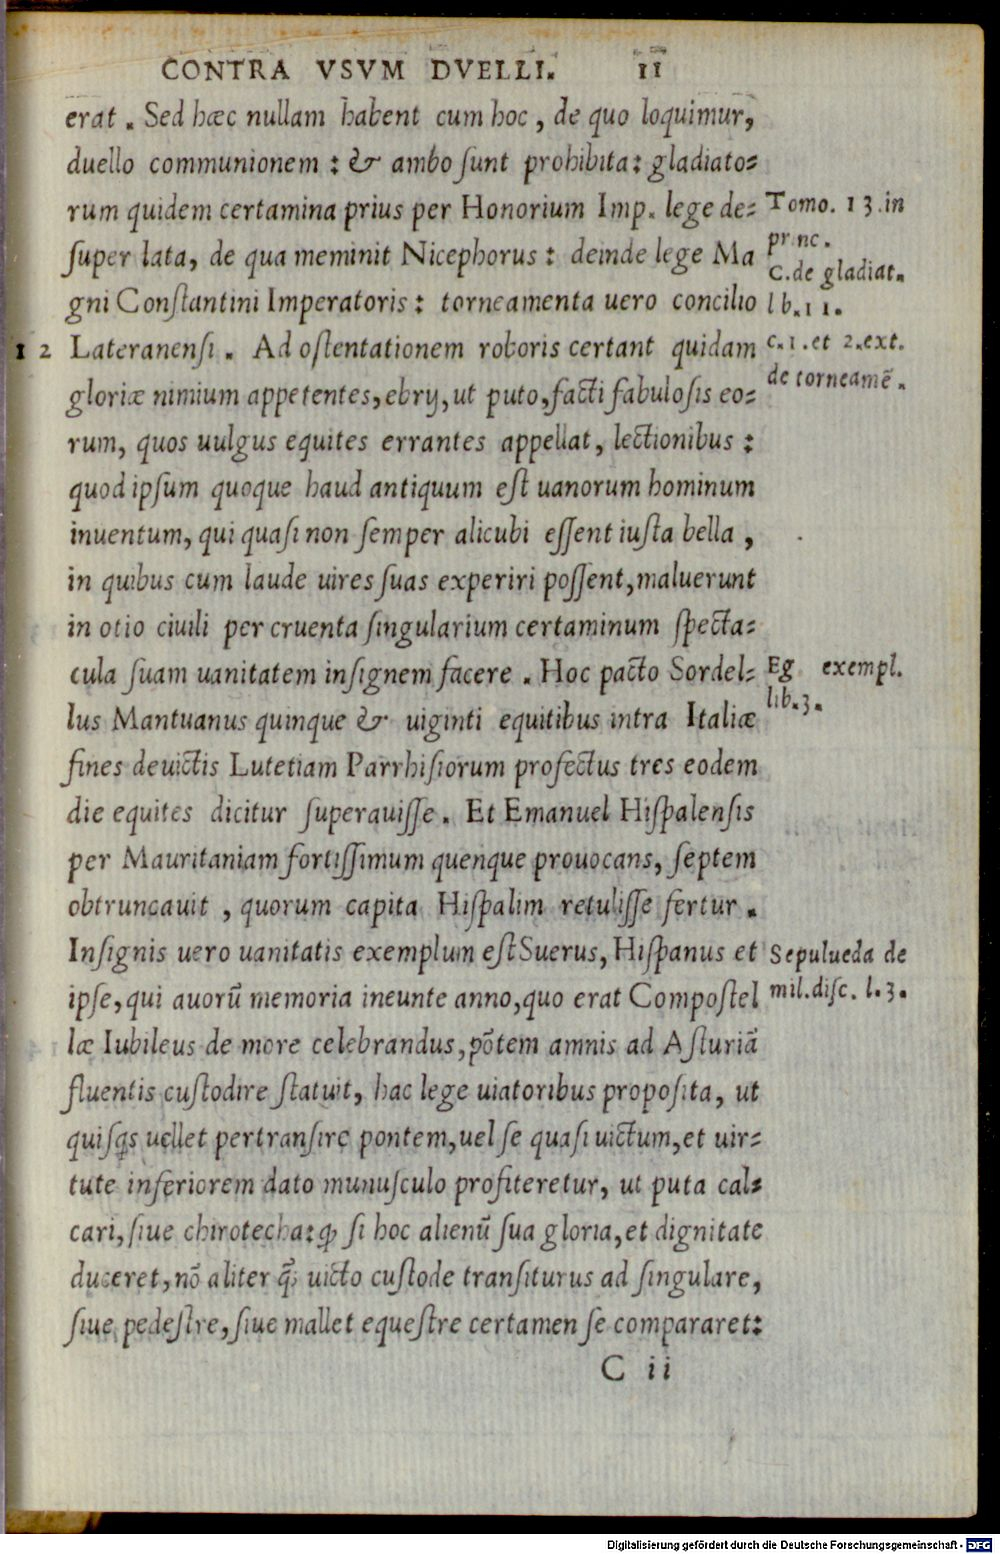 CONTRA VSVM DVELLI. 11
erat. Sed hæc nullam habent cum hoc, de quo loquimur,
duello communionem: & ambo ſunt prohibita: gladiato=
rum quidem certamina prius per Honorium Imp. lege de=
ſuper lata, de qua meminit Nicephorus: deinde lege Ma
gni Conſtantini Imperatoris: torneamenta uero concilio
12 Lateranenſi. Ad oſtentationem roboris certant quidam
gloriæ nimium appetentes, ebrij, ut puto, facti fabuloſis eo=
rum, quos uulgus equites errantes appellat, lectionibus:
quod ipſum quoque haud antiquum eſt uanorum hominum
inuentum, qui quaſi non ſemper alicubi eſſent iuſta bella,
in quibus cum laude uires ſuas experiri poſſent, maluerunt
in otio ciuili per cruenta ſingularium certaminum ſpecta=
cula ſuam uanitatem inſignem facere. Hoc pacto Sordel=
lus Mantuanus quinque & uiginti equitibus intra Italiæ
fines deuictis Lutetiam Parrhiſiorum profectus tres eodem
die equites dicitur ſuperauiſſe. Et Emanuel Hiſpalenſis
per Mauritaniam fortiſſimum quenque prouocans, ſeptem
obtruncauit, quorum capita Hiſpalim retuliſſe fertur.
Inſignis uero uanitatis exemplum eſt Suerus, Hiſpanus et
ipſe, qui auorũ memoria ineunte anno, quo erat Compoſtel
læ Iubileus de more celebrandus, põtem amnis ad Aſturiã
fluentis cuſtodire ſtatuit, hac lege uiatoribus propoſita, ut
quiſꝗs uellet pertranſire pontem, uel ſe quaſi uictum, et uir=
tute inferiorem dato munuſculo profiteretur, ut puta cal=
cari, ſiue chirotecha: ꝙ ſi hoc alienũ ſua gloria, et dignitate
duceret, nõ aliter q̃ uicto cuſtode tranſiturus ad ſingulare,
ſiue pedeſtre, ſiue mallet equeſtre certamen ſe compararet:
C ii
Tomo. 13. in
princ.
C. de gladiat.
lb. 11.
c. 1. et 2. ext.
de torneamẽ.
Eg exempl.
lib. 3.
Sepulueda de
mil. diſc. l. 3.
Digitalisierung gefördert durch die Deutsche Forschungsgemeinschaft - DFG